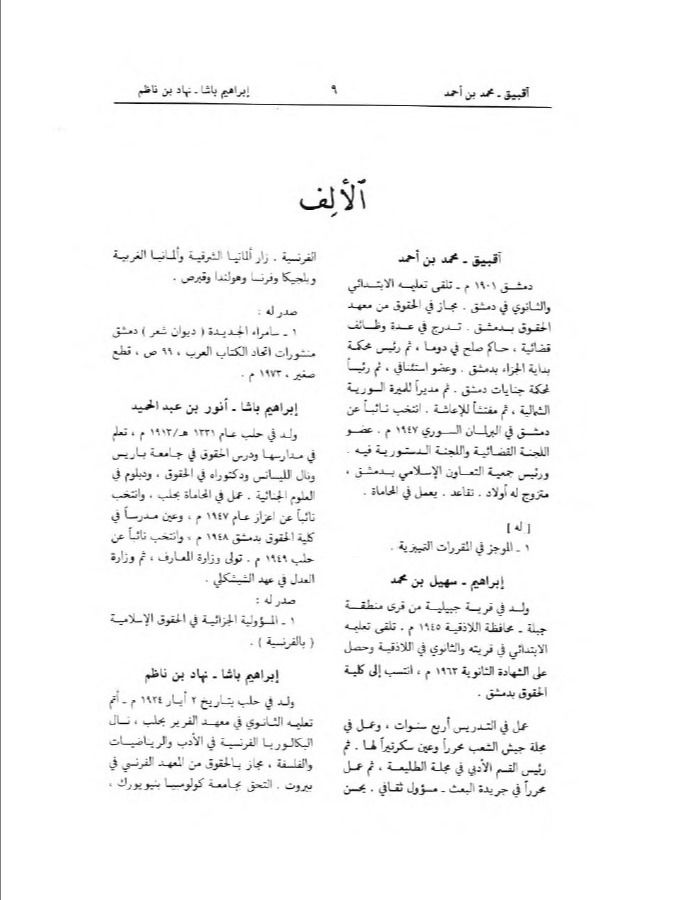 آقبيق ـ محمد بن أحمد
٩
إبراهيم باشا ـ نهاد بن ناظم
الألِف
آقبيق ـ محمد بن أحمد
دمشق ١٩٠١ م ـ تلقى تعليمه الابتدائي
والثانوي في دمشق . مجاز في الحقوق من معهد
الحقوق بدمشق . تدرج في عدة وظائف
قضائية ، حاكم صلح في دوما ، ثم رئيس محكمة
بداية الجزاء بدمشق . وعضو استئنافي ، ثم رئيساً
لمحكمة جنايات دمشق . ثم مديراً للميرة السورية
الشمالية ، ثم مفتشاً للإعاشة . انتخب نائباً عن
دمشق في البرلمان السوري ١٩٤٧ م . عضو
اللجنة القضائية واللجنة الدستورية فيه .
ورئيس جمعية التعاون الإسلامي بدمشق ،
متزوج له أولاد . تقاعد . يعمل في المحاماة .
[ له ]
١ ـ الموجز في المقررات التمييزية .
إبراهيم ـ سهيل بن محمد
ولد في قرية جبيلية من قرى منطقة
جبلة ـ محافظة اللاذقية ١٩٤٥ م . تلقى تعليمه
الابتدائي في قريته والثانوي في اللاذقية وحصل
على الشهادة الثانوية ١٩٦٣ م ، انتسب إلى كلية
الحقوق بدمشق .
عمل في التدريس أربع سنوات ، وعمل في
مجلة جيش الشعب محرراً وعين سكرتيراً لها . ثم
رئيس القسم الأدبي في مجلة الطليعة ، ثم عمل
محرراً في جريدة البعث ـ مسؤول ثقافي . يحسن
الفرنسية . زار ألمانيا الشرقية وألمانيا الغربية
وبلجيكا وفرنسا وهولندا وقبرص .
صدر له :
١ ـ سامراء الجديدة ( ديوان شعر ) دمشق
منشورات اتحاد الكتاب العرب ، ٩٩ ص ، قطع
صغير ، ١٩٧٣ م .
إبراهيم باشا ـ أنور بن عبد الحميد
ولد في حلب عام ١٣٣١ هـ/١٩١٣ م ، تعلم
في مدارسها ودرس الحقوق في جامعة باريس
ونال الليسانس ودكتوراه في الحقوق ، ودبلوم في
العلوم الجنائية . عمل في المحاماة بحلب ، وانتخب
نائباً عن اعزاز عام ١٩٤٧ م ، وعين مدرساً في
كلية الحقوق بدمشق ١٩٤٨ م ، وانتخب نائباً عن
حلب ١٩٤٩ م . تولى وزارة المعارف ، ثم وزارة
العدل في عهد الشيشكلي .
صدر له :
١ ـ المسؤولية الجزائية في الحقوق الإسلامية
( بالفرنسية ) .
إبراهيم باشا ـ نهاد بن ناظم
ولد في حلب بتاريخ ٢ أيار ١٩٣٤ م ـ أتم
تعليمه الثانوي في معهد الفرير بحلب ، نال
البكالوريا الفرنسية في الأدب والرياضيات
والفلسفة ، مجاز بالحقوق من المعهد الفرنسي في
بيروت . التحق بجامعة كولومبيا بنيويورك ،